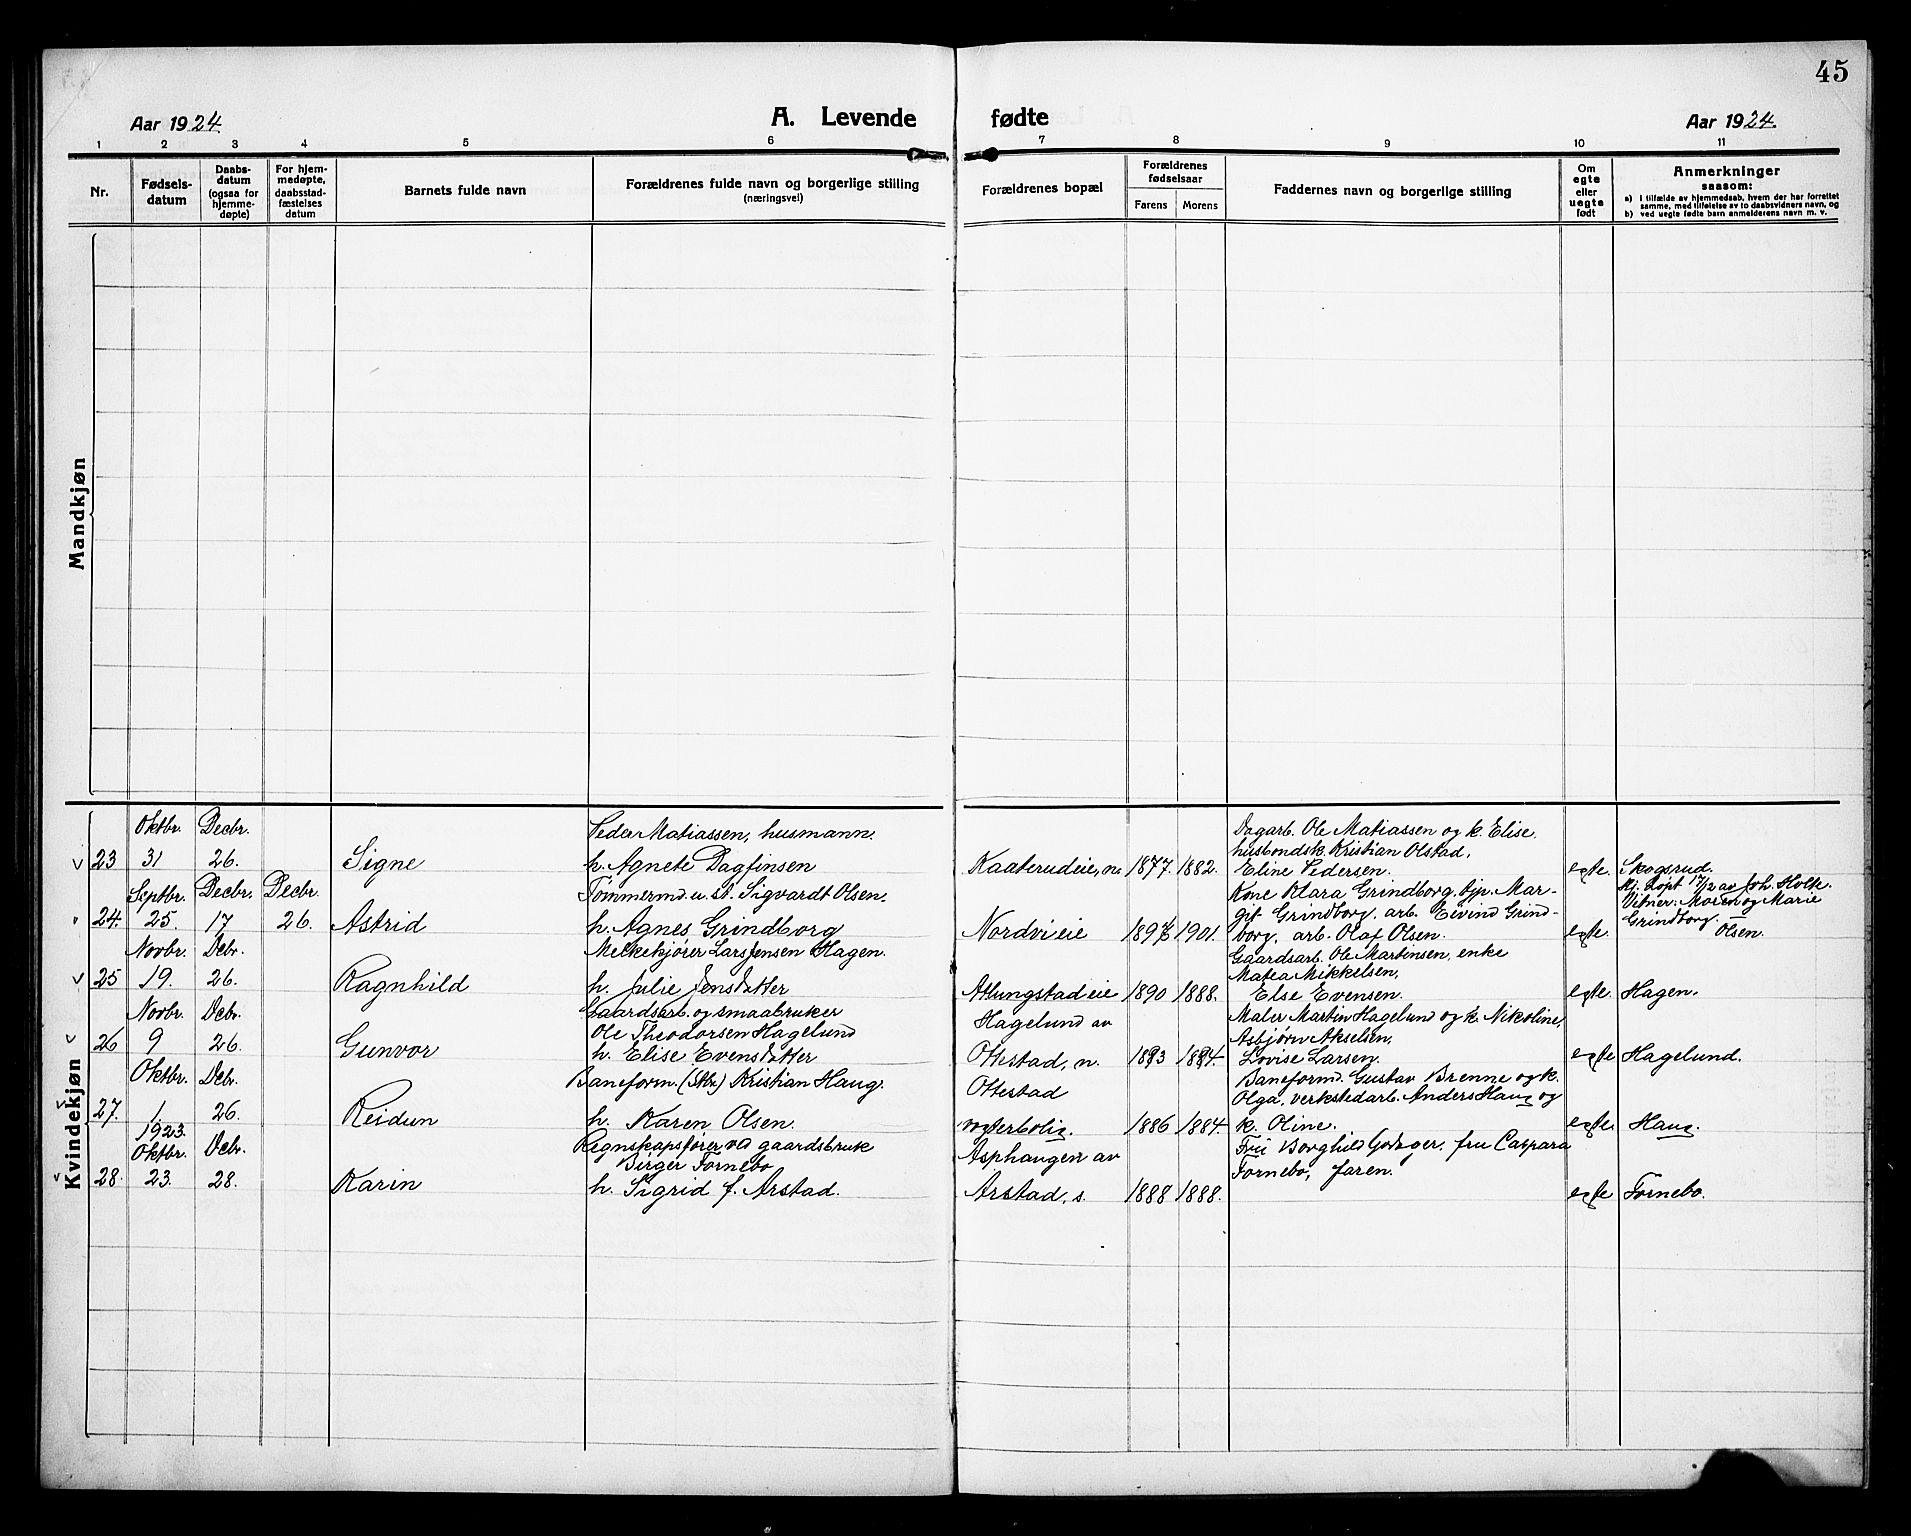 45
Aar 1924. A. Levende fødte Aar 1924.
1 2 3 4 5 6 7 8 9 10 11
Nr.
Fødsels-
datum
Daabs-
datum
(ogsaa for
hjemme-
døpte)
For hjem-
medøpte,
daabsstad-
fæstelses
datum
Barnets fulde navn
Forældrenes fulde navn og borgerlige stilling
(næringsvei)
Forældrenes bopæl
Forældrenes
fødselsaar
Farens Morens
Faddernes navn og borgerlige stilling
Om
egte
eller
uegte
født
Anmerkninger
saasom:
a) i tilfælde av hjemmedaab, hvem der har forrettet
samme, med tilføielse av to daabsvidners navn, og
b) ved uegte fødte barn anmelderens navn m. v.
Mandkjøn
Kvindekjøn
Oktbr. Decbr. Peder Matiassen, husmann. Dagarb. Ole Matiassen og k. Elise.
husbondsk. Kristian Olstad,
23 31 26. Signe h. Agnete Dagfinsen Kaaterudeie, n. 1877. 1882. Eline Pedersen. egte. Skogsrud.
Septbr. Decbr. Decbr. Tømmermd. u. st. Sigvardt Olsen. Kone Klara Grindborg, pp. Mar-
Hj. døpt 17/12 av Joh. Holte.
Vitner: Moren og Marie
git Grindborg, arb. Eivind Grind-
24. 25. 17 26. Astrid h. Agnes Grindborg Nordvieie 1897 1901. borg, arb. Olaf Olsen. egte. Grindborg. Olsen.
Novbr. Debr. Melkekjører Lars Jensen Hagen. Gaardsarb. Ole Martinsen, enke
Matea Mikkelsen,
25 19. 26. Ragnhild h. Julie Jensdatter Atlungstadeie 1890 1888. Else Evensen. egte. Hagen.
Novbr. Debr. Gaardsarb. og smaabruker
Ole Theodorsen Hagelund Hagelund av Maler Martin Hagelund og k. Nikoline,
Asbjørn Akselsen,
26 9 26. Gunvor h. Elise Evensdatter Ottestad, n. 1893 1894. Lovise Larsen. egte Hagelund.
Oktbr. Debr. Baneform. (Stbr) Kristian Haug. Ottestad Baneformd. Gustav Brenne og k.
Olga, verkstedarb. Anders Haug og
27. 1 26. Reidun h. Karen Olsen. vogterbolig. 1886 1884. k. Oline. egte. Haug.
1923.
Oktbr. Debr. Regnskapsfører va gaardsbruk
Birger Fornebo Asphaugen av Frii Borghild Godager, fru Caspara
Fornebo, faren.
28. 23. 28. Karin h. Sigrid f. Arstad. Arstad, s. 1888 1888. egte Fornebo.